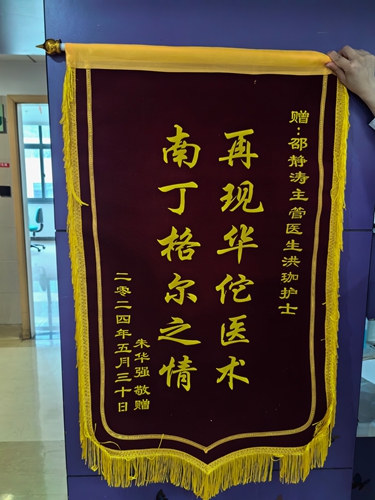 赠：邵静涛主管医生洪珈护士
再现华佗医术
南丁格尔之情
朱华强 敬赠
二零二四年五月三十日